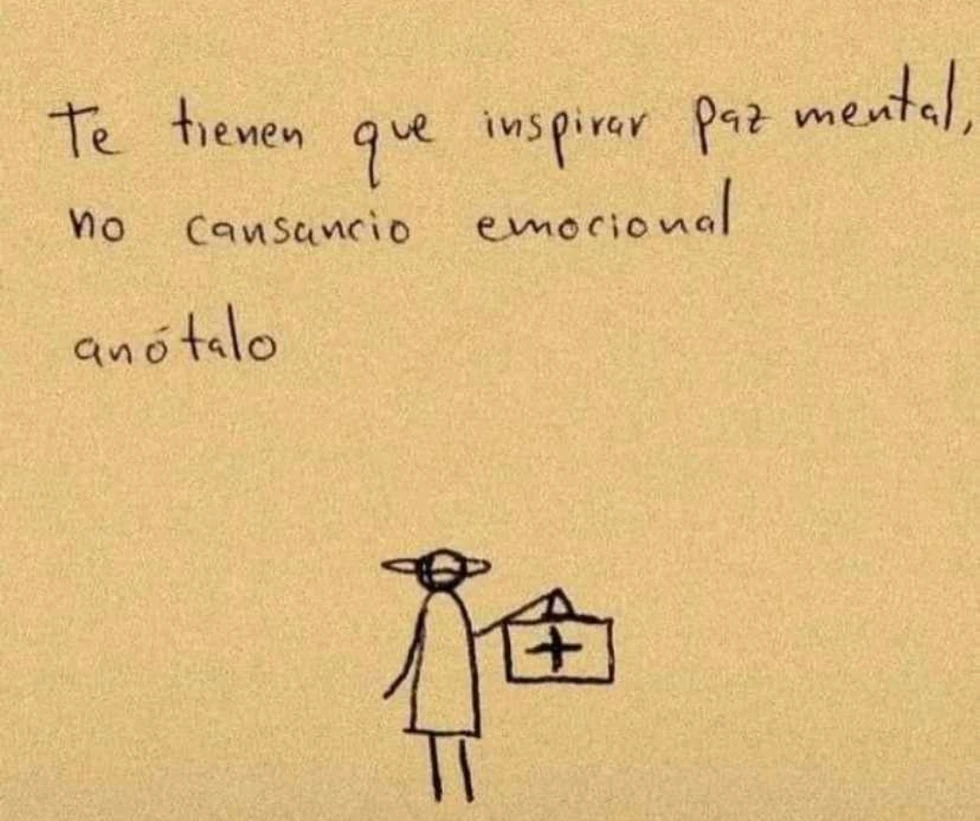 Te tienen que inspirar paz mental,
no cansancio emocional
anótalo